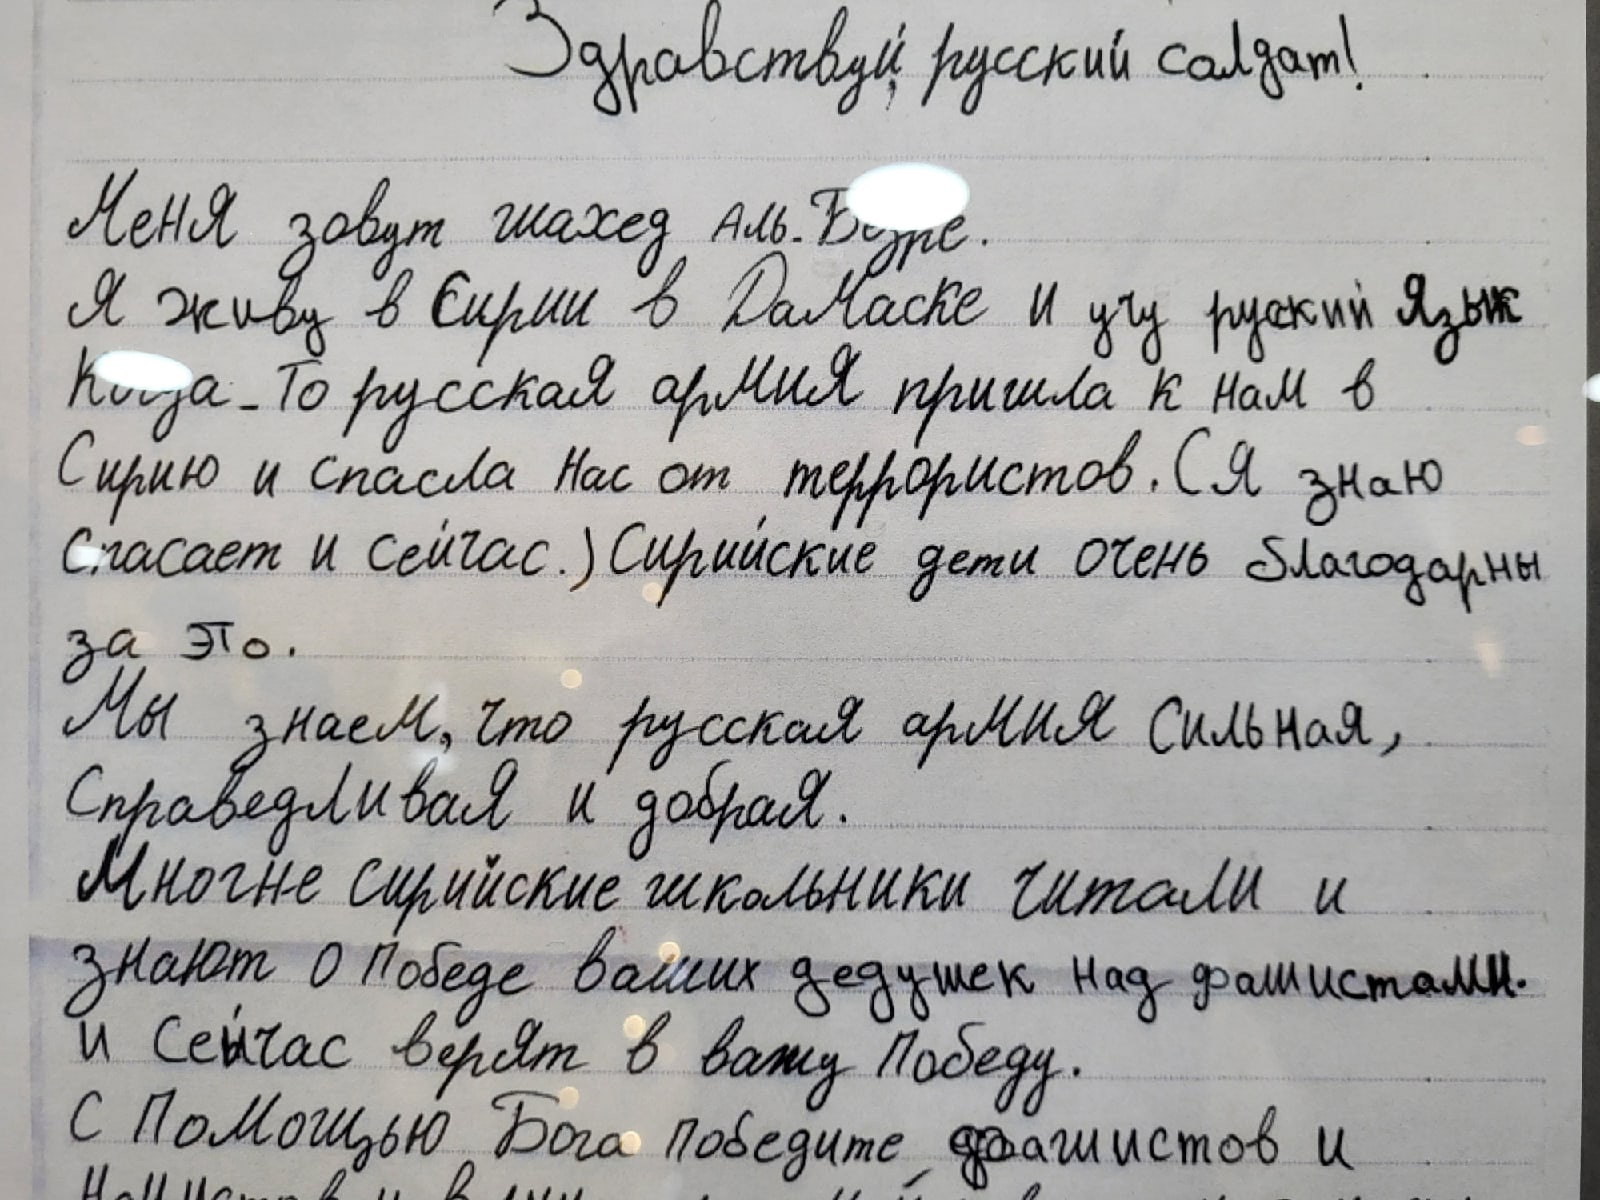 Здравствуй, русский солдат!
Меня зовут шахед Аль-
Я живу в Сирии в Дамаске и учу руский язык
Когда-то русская армия пришла к нам в
Сирию и спасла нас от террористов. (Я знаю
спасает и сейчас.) Сирийские дети очень благодарны
за это.
Мы знаем, что русская армия сильная,
Справедливая и добрая.
Многие сирийские школьники читали и
знают о победе ваших дедушек над фашистами.
и сейчас верят в вашу победу.
С помощью Бога победите фашистов и